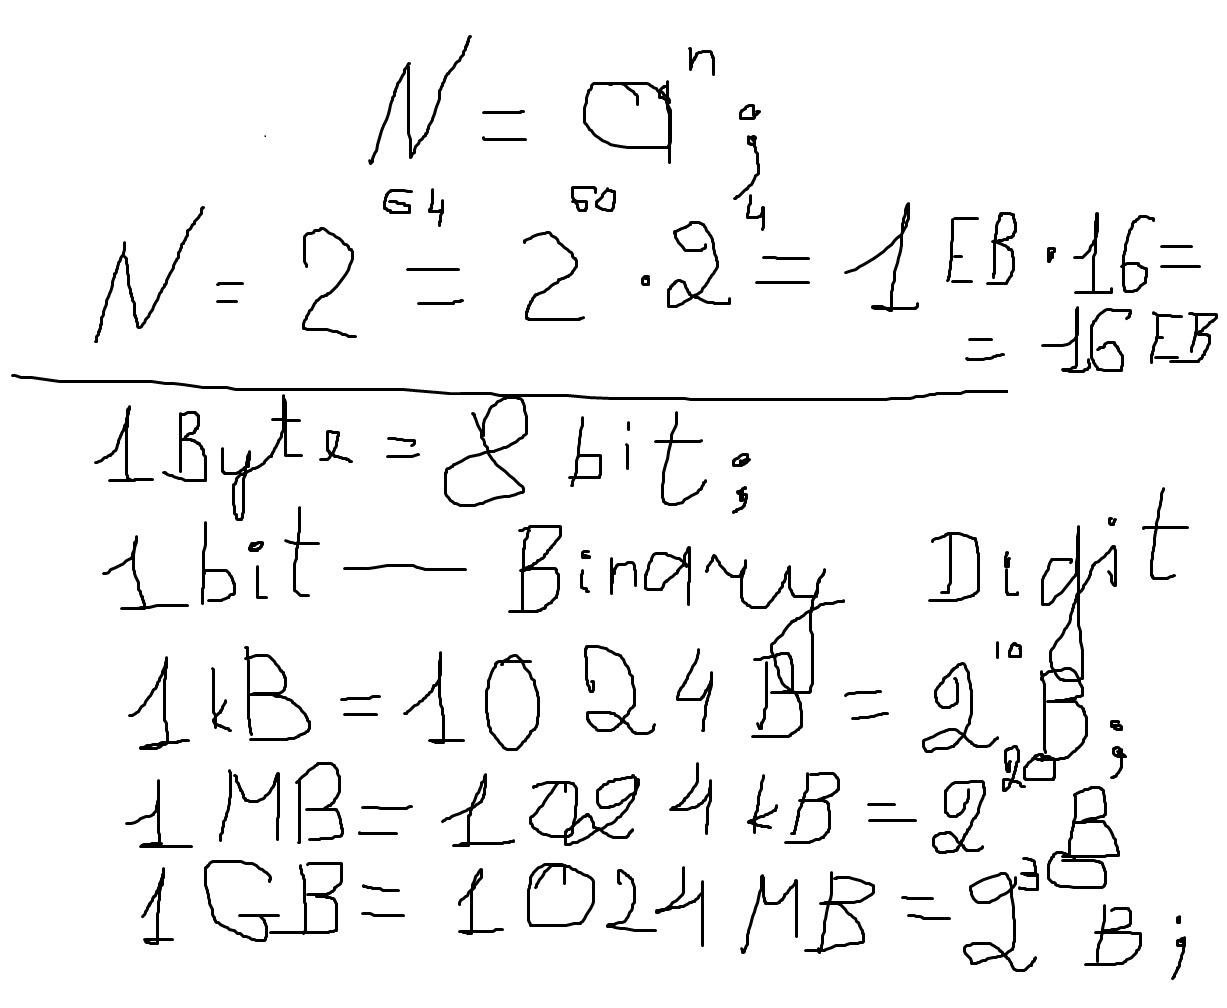 N = aⁿ;
N = 2⁶⁴ = 2⁶⁰ · 2⁴ = 1 EB · 16 =
= 16 EB
1 Byte = 8 bit;
1 bit — Binary Digit
1 kB = 1024 B = 2¹⁰ B;
1 MB = 1024 kB = 2²⁰ B
1 GB = 1024 MB = 2³⁰ B;